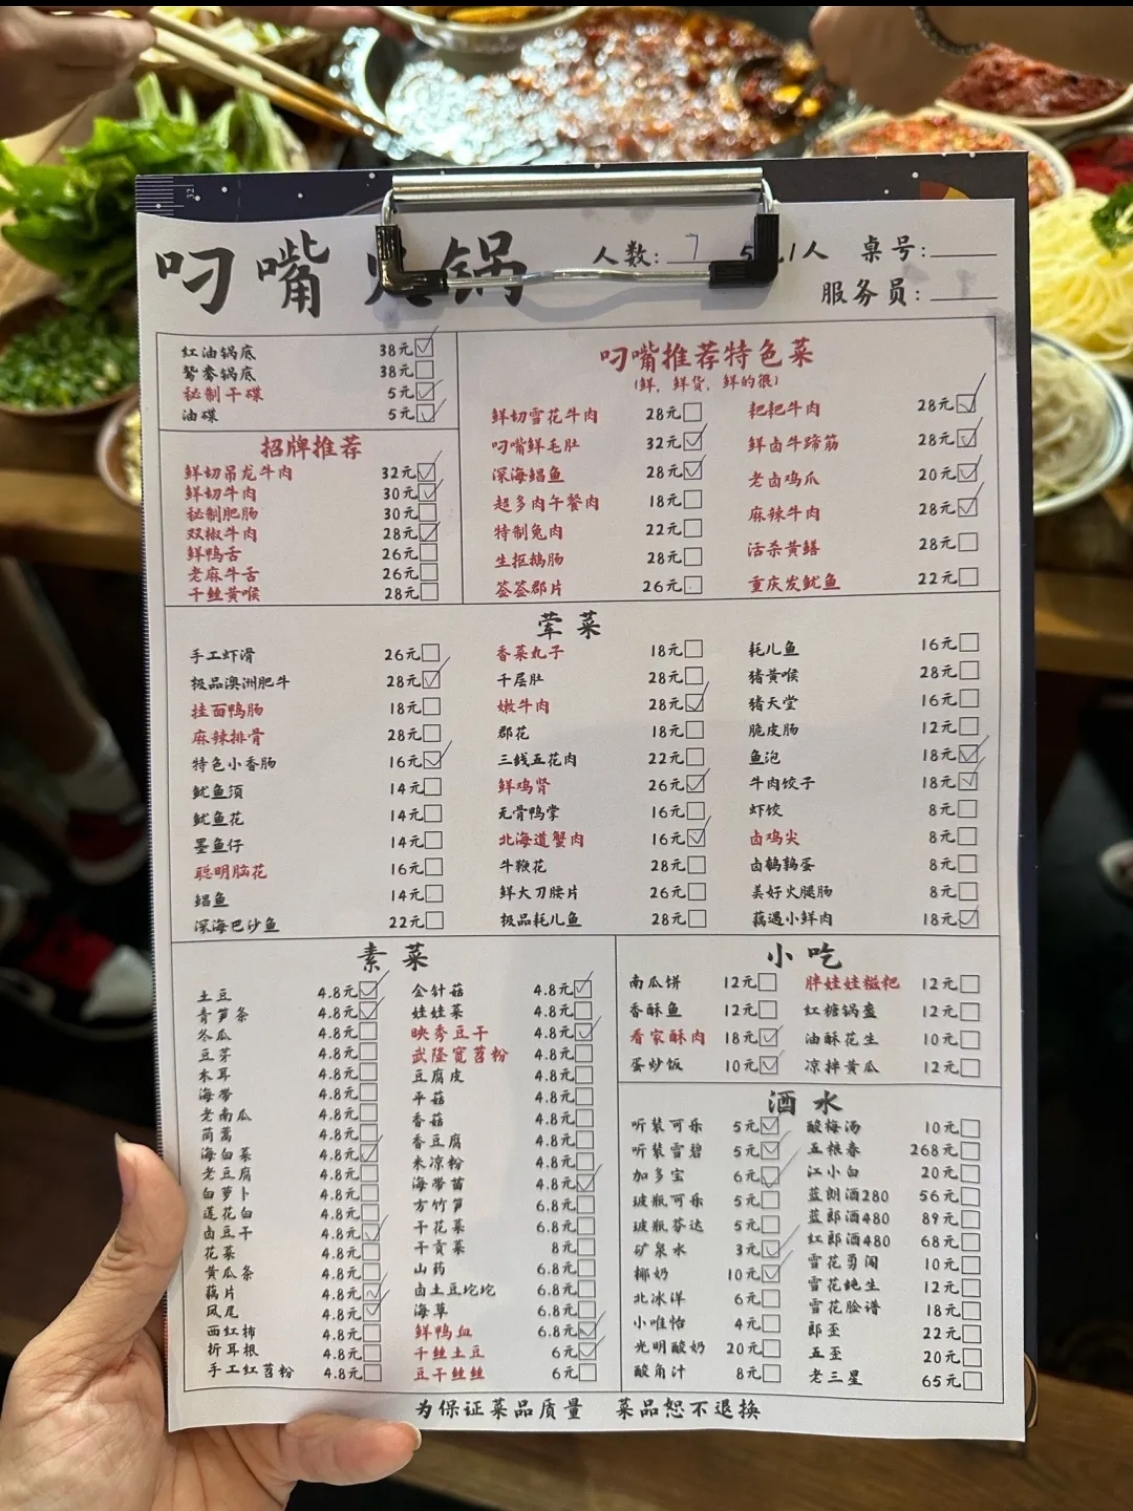 叼嘴火锅
人数: 7 人 桌号:
服务员:
红油锅底 38元
鸳鸯锅底 38元
秘制干碟 5元
油碟 5元
招牌推荐
鲜切吊龙牛肉 32元
鲜切牛肉 30元
秘制肥肠 30元
双椒牛肉 28元
鲜鸭舌 26元
老麻牛舌 26元
千丝黄喉 28元
叼嘴推荐特色菜
(鲜,鲜货,鲜的很)
鲜切雪花牛肉 28元 粑粑牛肉 28元
叼嘴鲜毛肚 32元 鲜卤牛蹄筋 28元
深海鲳鱼 28元 老卤鸡爪 20元
超多肉午餐肉 18元 麻辣牛肉 28元
特制兔肉 22元 活杀黄鳝 28元
生抠鹅肠 28元 重庆发鱿鱼 22元
签签郡片 26元
荤菜
手工虾滑 26元 香菜丸子 18元 耗儿鱼 16元
极品澳洲肥牛 28元 千层肚 28元 猪黄喉 28元
挂面鸭肠 18元 嫩牛肉 28元 猪天堂 16元
麻辣排骨 28元 郡花 18元 脆皮肠 12元
特色小香肠 16元 三线五花肉 22元 鱼泡 18元
鱿鱼须 14元 鲜鸡肾 26元 牛肉饺子 18元
鱿鱼花 14元 无骨鸭掌 16元 虾饺 8元
墨鱼仔 14元 北海道蟹肉 16元 卤鸡尖 8元
聪明脑花 16元 牛鞭花 28元 卤鹌鹑蛋 8元
鲳鱼 14元 鲜大刀腰片 26元 美好火腿肠 8元
深海巴沙鱼 22元 极品耗儿鱼 28元 藕遇小鲜肉 18元
素菜
土豆 4.8元 金针菇 4.8元
青笋条 4.8元 娃娃菜 4.8元
冬瓜 4.8元 映秀豆干 4.8元
豆芽 4.8元 武隆宽苕粉 4.8元
木耳 4.8元 豆腐皮 4.8元
海带 4.8元 平菇 4.8元
老南瓜 4.8元 香菇 4.8元
茼蒿 4.8元 香豆腐 4.8元
海白菜 4.8元 米凉粉 4.8元
老豆腐 4.8元 海带苗 4.8元
白萝卜 4.8元 方竹笋 6.8元
莲花白 4.8元 干花菜 6.8元
卤豆干 4.8元 干贡菜 8元
花菜 4.8元 山药 6.8元
黄瓜条 4.8元 卤土豆坨坨 6.8元
藕片 4.8元 海草 6.8元
凤尾 4.8元 鲜鸭血 6.8元
西红柿 4.8元 千丝土豆 6元
折耳根 4.8元 豆干丝丝 6元
手工红苕粉 4.8元
小吃
南瓜饼 12元 胖娃娃糍粑 12元
香酥鱼 12元 红糖锅盔 12元
看家酥肉 18元 油酥花生 10元
蛋炒饭 10元 凉拌黄瓜 12元
酒水
听装可乐 5元 酸梅汤 10元
听装雪碧 5元 五粮春 268元
加多宝 6元 江小白 20元
玻瓶可乐 5元 蓝郎酒280 56元
玻瓶芬达 5元 蓝郎酒480 89元
矿泉水 3元 红郎酒480 68元
椰奶 10元 雪花勇闯 10元
北冰洋 6元 雪花纯生 12元
小唯怡 4元 雪花脸谱 18元
光明酸奶 20元 郎歪 22元
酸角汁 8元 五歪 20元
老三星 65元
为保证菜品质量 菜品恕不退换